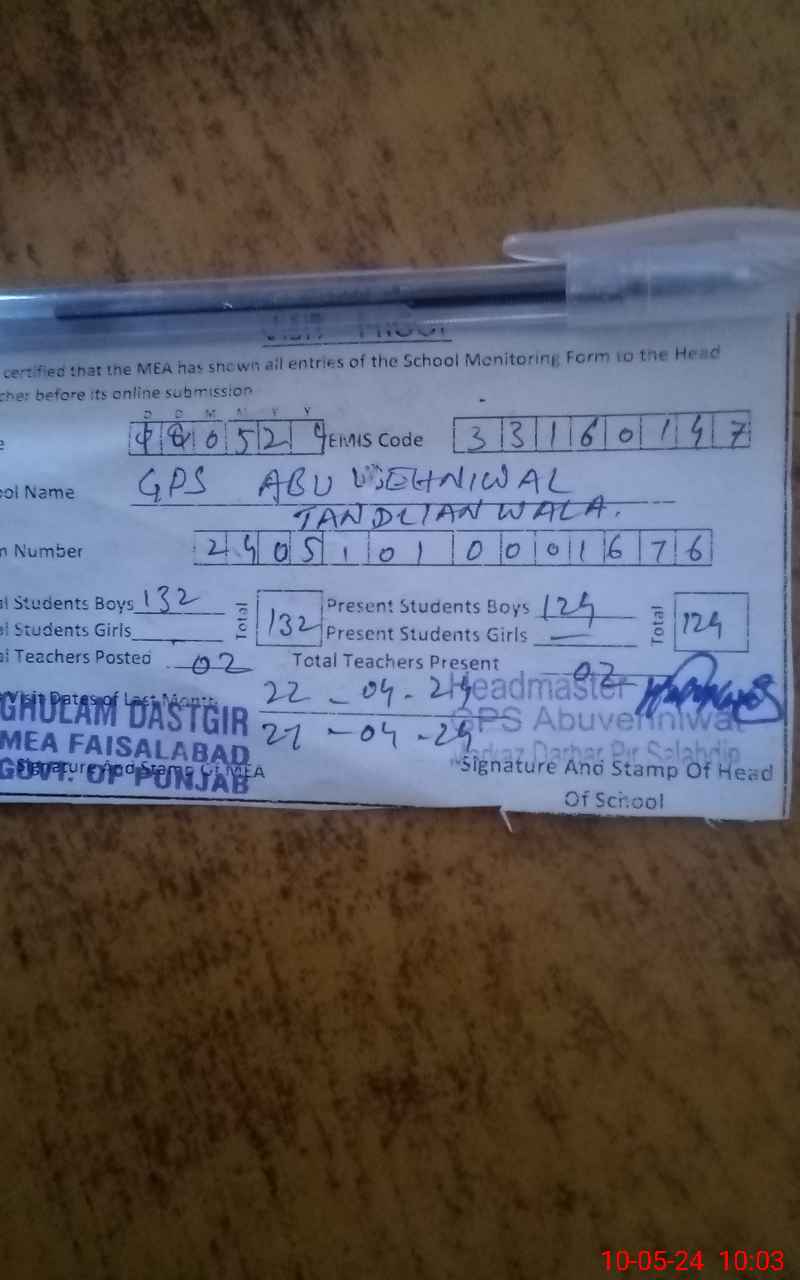 VISIT PROOF
certified that the MEA has shown all entries of the School Monitoring Form to the Head
cher before its online submission
D D M M Y Y
0 5 2 4 EMIS Code 3 3 1 6 0 1 4 7
ool Name GPS ABU VEHNIWAL
TANDLIANWALA.
m Number 2 4 0 5 1 0 1 0 0 0 1 6 7 6
al Students Boys 132 Total 132 Present Students Boys 124 Total 124
al Students Girls Present Students Girls —
al Teachers Posted 02 Total Teachers Present 02
Visit Dates of Last Month 22-04-24
-04-24
GHULAM DASTGIR
MEA FAISALABAD
GOVT. OF PUNJAB
Signature And Stamp Of MEA
Headmaster
GPS Abuvehniwal
Markaz Darbar Pir Salahdin
Signature And Stamp Of Head
Of School
10-05-24 10:03